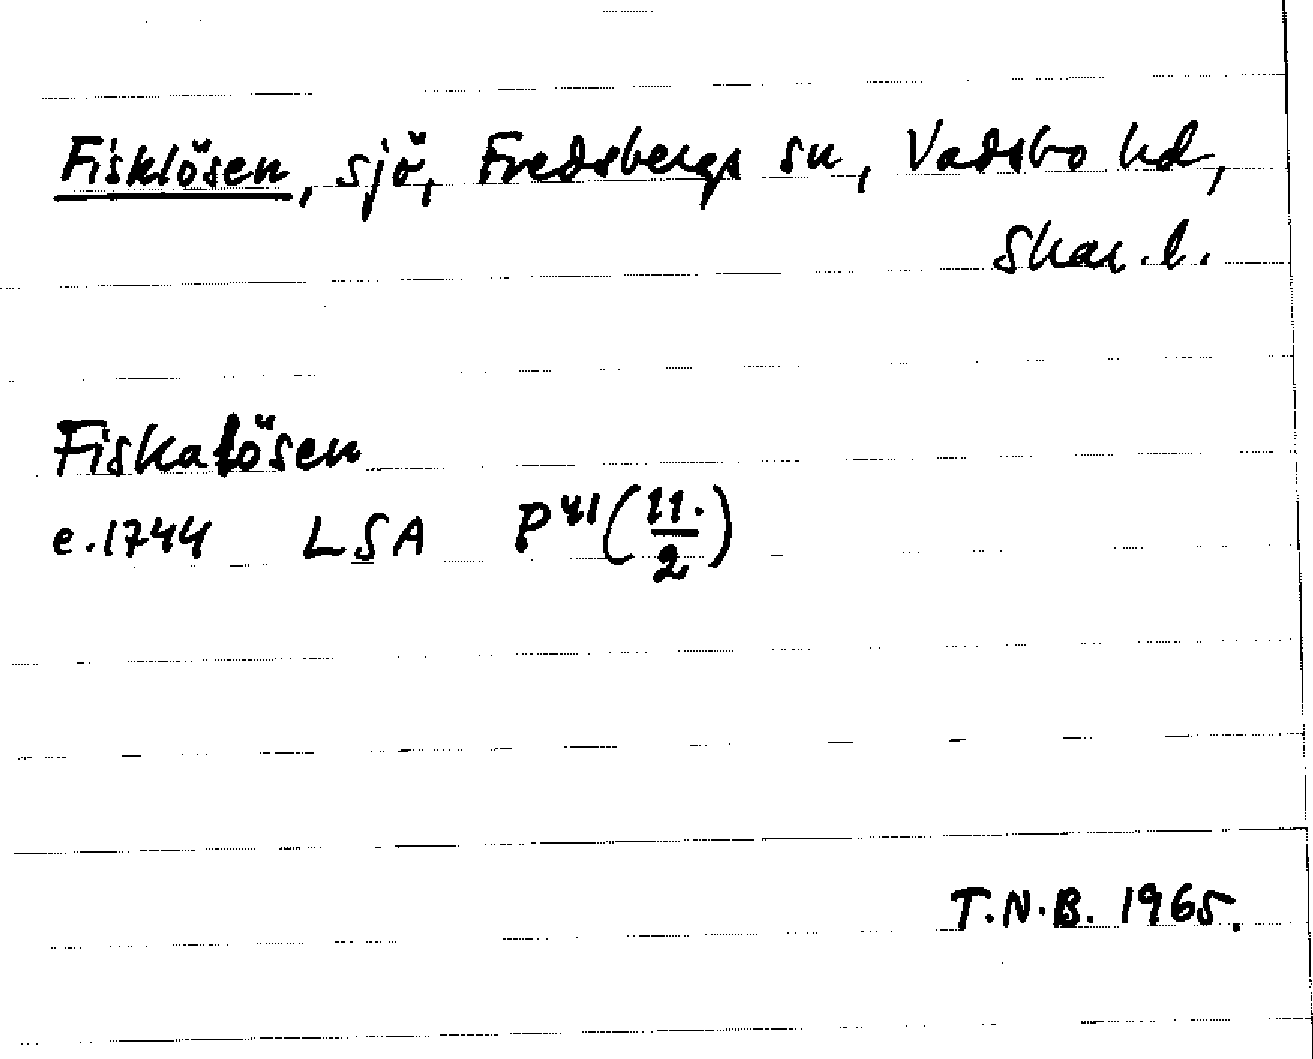 Fisklösen, sjö, Fredsbergs sn, Vadsbo hd,
Skar. l.
Fiskalösen
e. 1744 LSA P41 (11./2)
T.N.B. 1965.